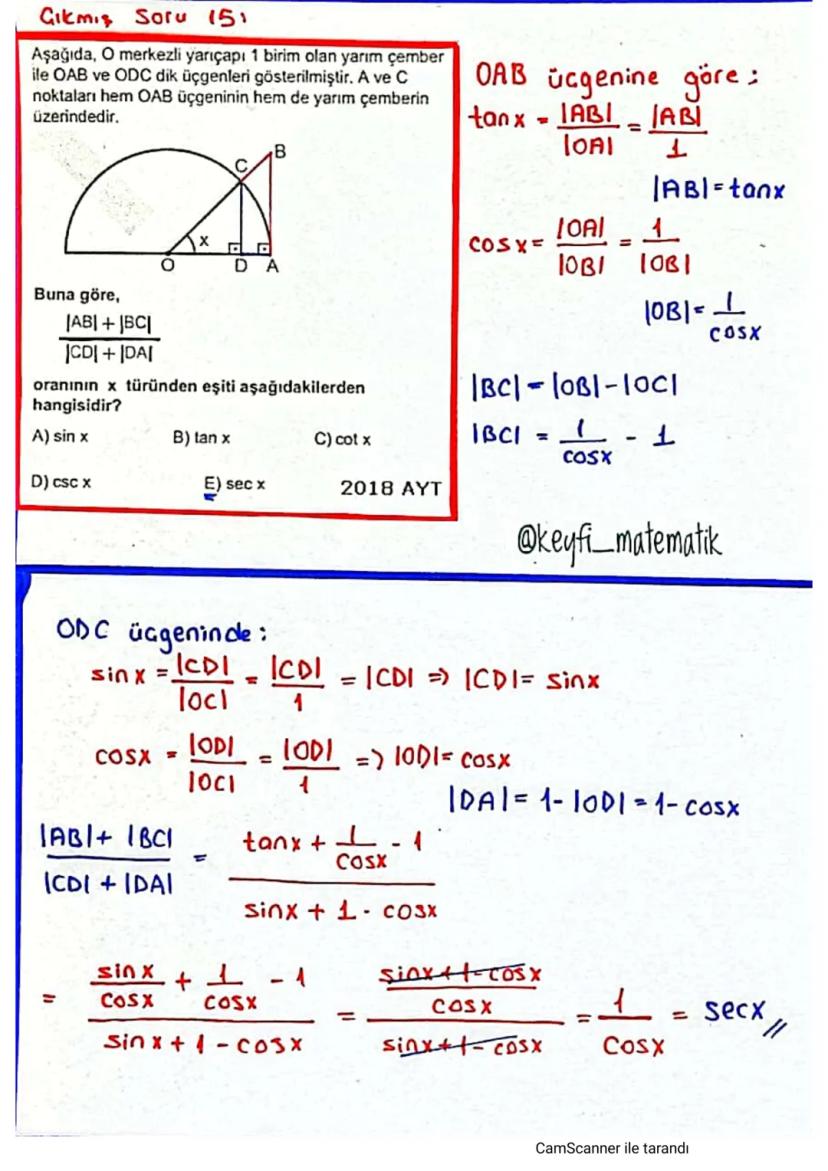 Çıkmış Soru 15:
Aşağıda, O merkezli yarıçapı 1 birim olan yarım çember
ile OAB ve ODC dik üçgenleri gösterilmiştir. A ve C
noktaları hem OAB üçgeninin hem de yarım çemberin
üzerindedir.
B
C
x
O D A
Buna göre,
|AB| + |BC|
|CD| + |DA|
oranının x türünden eşiti aşağıdakilerden
hangisidir?
A) sin x B) tan x C) cot x
D) csc x E) sec x 2018 AYT
OAB üçgenine göre:
tanx = |AB|/|OA| = |AB|/1
|AB| = tanx
cosx = |OA|/|OB| = 1/|OB|
|OB| = 1/cosx
|BC| = |OB| - |OC|
|BC| = 1/cosx - 1
@keyfi_matematik
ODC üçgeninde:
sinx = |CD|/|OC| = |CD|/1 = |CD| => |CD| = sinx
cosx = |OD|/|OC| = |OD|/1 => |OD| = cosx
|DA| = 1 - |OD| = 1 - cosx
(|AB| + |BC|)/(|CD| + |DA|) = (tanx + 1/cosx - 1)/(sinx + 1 - cosx)
= (sinx/cosx + 1/cosx - 1)/(sinx + 1 - cosx) = ((sinx + 1 - cosx)/cosx)/(sinx + 1 - cosx) = 1/cosx = secx //
CamScanner ile tarandı